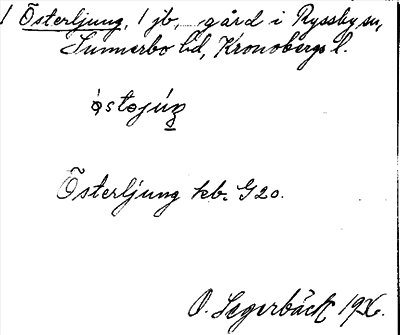 1 Österljung, 1 jb, gård i Ryssby sn,
Sunnerbo hd, Kronobergs l.
Österljung kb. G20.
O. Lagerbäck 1936.